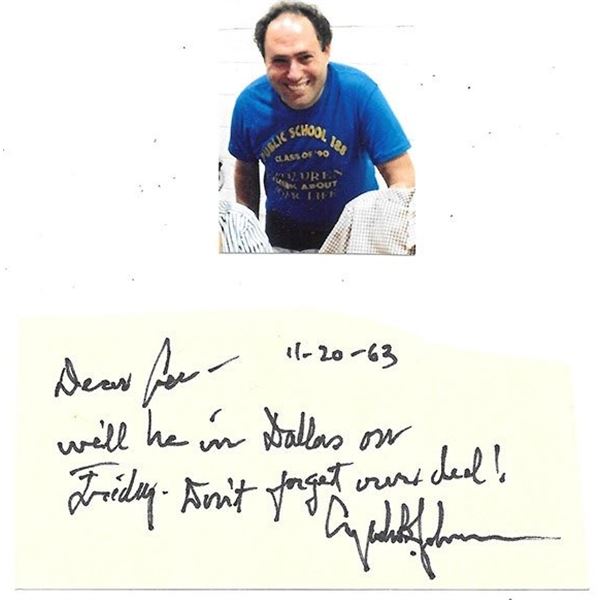 PUBLIC SCHOOL 188
CLASS OF '90
CHILDREN
THINK ABOUT
YOUR LIFE
11-20-63
Dear Lee -
we'll be in Dallas on
Friday. Don't forget our deal!
Lyndon B. Johnson